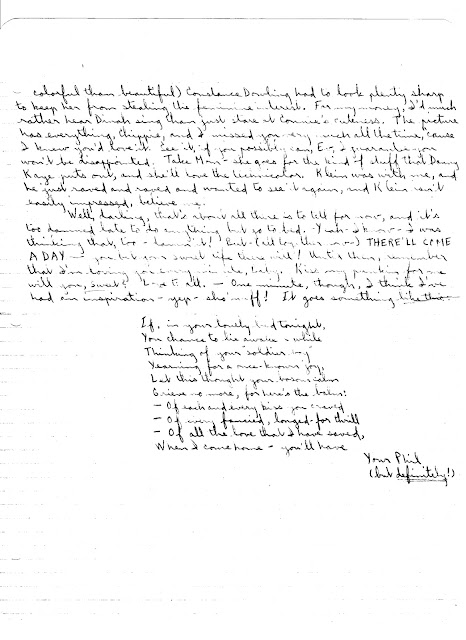 colorful than beautiful) Constance Dowling had to look plenty sharp
to keep her from stealing the feminine interest. For my money, I'd much
rather hear Dinah sing than just stare at Connie's cuteness. The picture
has everything, Chippie, and I missed you very much all the time, 'cause
I knew you'd love it. See it, if you possibly can, Ev, I guarantee you
won't be disappointed. Take Mom - she goes for the kind of stuff that Danny
Kaye puts out, and she'll love the technicolor. Klein was with me, and
he just raved and raved and wanted to see it again, and Klein isn't
easily impressed, believe me.
Well, darling, that's about all there is to tell for now, and it's
too damned late to do anything but go to bed. Yeah - I know - I was
thinking that, too - damn it! But - (all by this ) THERE'LL COME
A DAY - you bet your sweet life there will! Until then, remember
that I'm loving you every minute, baby. Kiss my for me
will you, sweet? all. - One minute, though, I think I've
had an inspiration - yep - sho' nuff! It goes something like this
If, in your lonely bed tonight,
You chance to lie awake a while
Thinking of your "soldier boy"
Yearning for a once-known joy,
Let this thought your bosom calm
Grieve no more, for here's the balm:
- Of each and every kiss you craved
- Of every fancied, longed-for thrill
- Of all the love that I have saved,
When I come home - you'll have
Your Phil
(but definitely!)